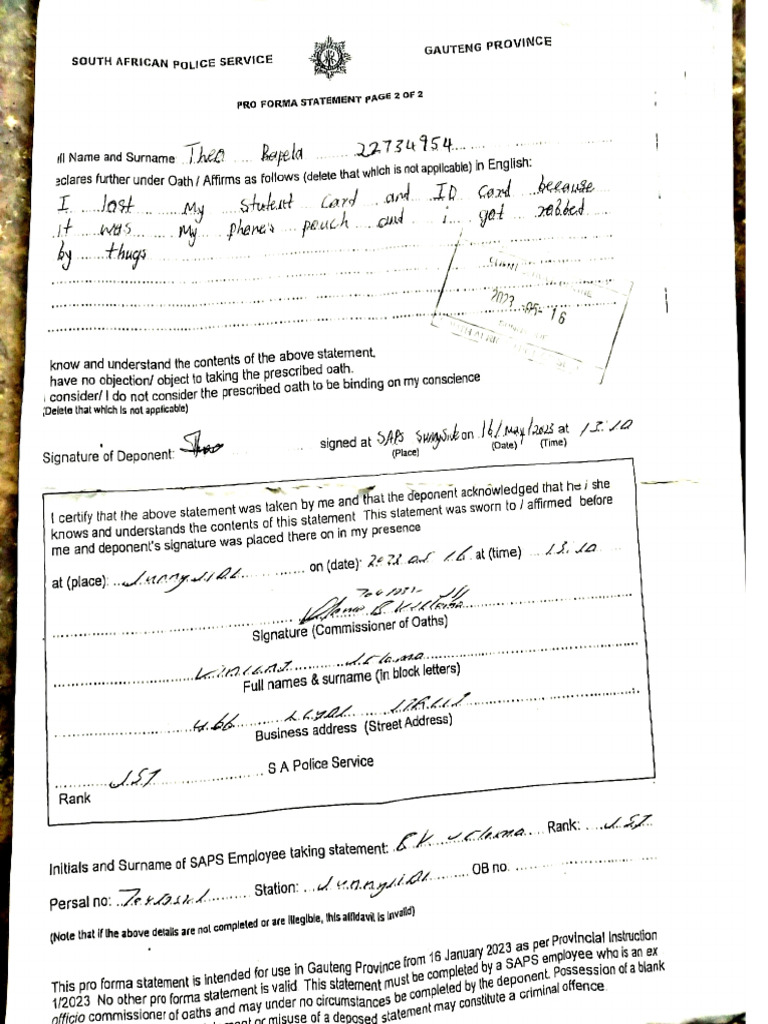 SOUTH AFRICAN POLICE SERVICE
GAUTENG PROVINCE
PRO FORMA STATEMENT PAGE 2 OF 2
ll Name and Surname Theo Rapela 22734954
eclares further under Oath / Affirms as follows (delete that which is not applicable) in English:
I lost my student card and ID card because
it was my phone's pouch and i got robbed
by thugs
2023 -05- 16
know and understand the contents of the above statement.
have no objection/ object to taking the prescribed oath.
consider/ I do not consider the prescribed oath to be binding on my conscience
(Delete that which is not applicable)
Signature of Deponent: Theo signed at SAPS Sunnyside on 16/May/2023 at 13:10
(Place) (Date) (Time)
I certify that the above statement was taken by me and that the deponent acknowledged that he / she
knows and understands the contents of this statement This statement was sworn to / affirmed before
me and deponent's signature was placed there on in my presence
at (place): Sunnyside on (date): 2023 05 16 at (time) 13:10
Signature (Commissioner of Oaths)
Vincent
Full names & surname (in block letters)
466 Street
Business address (Street Address)
SGT S A Police Service
Rank
Initials and Surname of SAPS Employee taking statement: Rank: SGT
Persal no: Station: Sunnyside OB no.
(Note that if the above details are not completed or are illegible, this affidavit is invalid)
This pro forma statement is intended for use in Gauteng Province from 16 January 2023 as per Provincial Instruction
1/2023 No other pro forma statement is valid This statement must be completed by a SAPS employee who is an ex
officio commissioner of oaths and may under no circumstances be completed by the deponent. Possession of a blank
or misuse of a deposed statement may constitute a criminal offence.